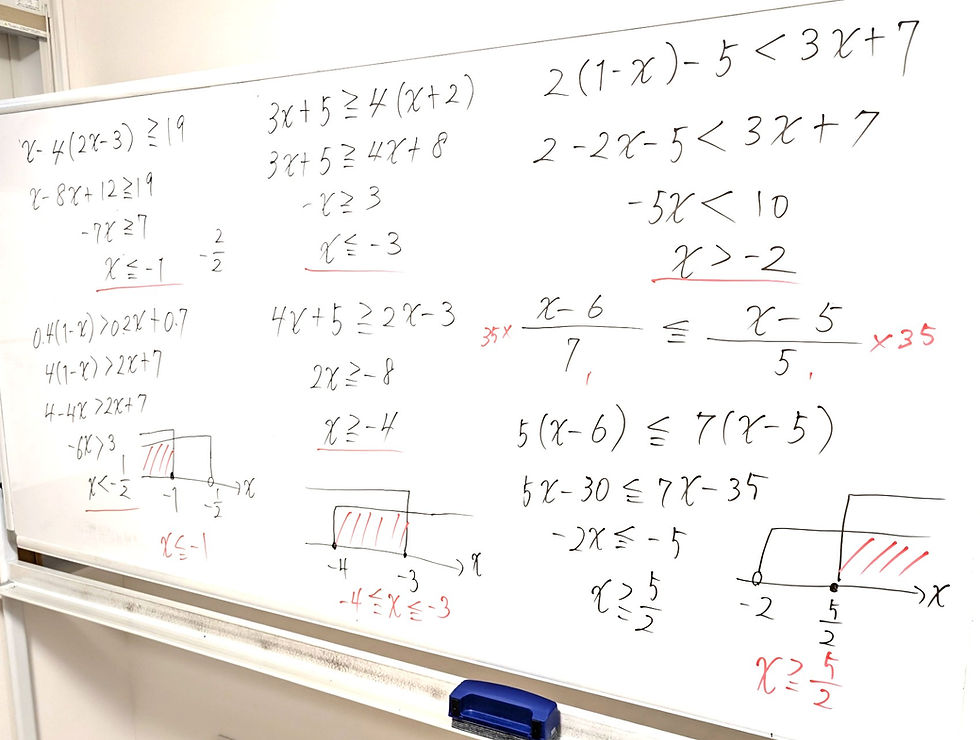 x-4(2x-3)≧19
x-8x+12≧19
-7x≧7
x≦-1
-2/2
0.4(1-x)>0.2x+0.7
4(1-x)>2x+7
4-4x>2x+7
-6x>3
x<-1/2
-1 -1/2 x
x≦-1
3x+5≧4(x+2)
3x+5≧4x+8
-x≧3
x≦-3
4x+5≧2x-3
2x≧-8
x≧-4
-4 -3 x
-4≦x≦-3
2(1-x)-5<3x+7
2-2x-5<3x+7
-5x<10
x>-2
35× (x-6)/7 ≦ (x-5)/5 ×35
5(x-6)≦7(x-5)
5x-30≦7x-35
-2x≦-5
x≧5/2
-2 5/2 x
x≧5/2